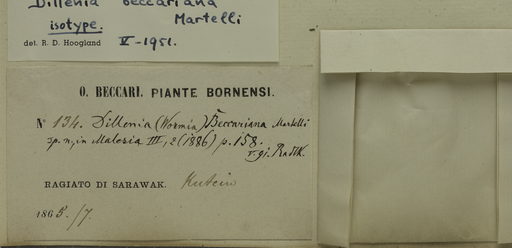 Dillenia beccariana
Martelli
isotype.
det. R. D. Hoogland V-1951.
O. BECCARI. PIANTE BORNENSI.
N° 134. Dillenia (Wormia) Beccariana Martelli
sp. n, in Malesia III, 2 (1886) p. 158.
RAGIATO DI SARAWAK. Kutcin
1865./7.